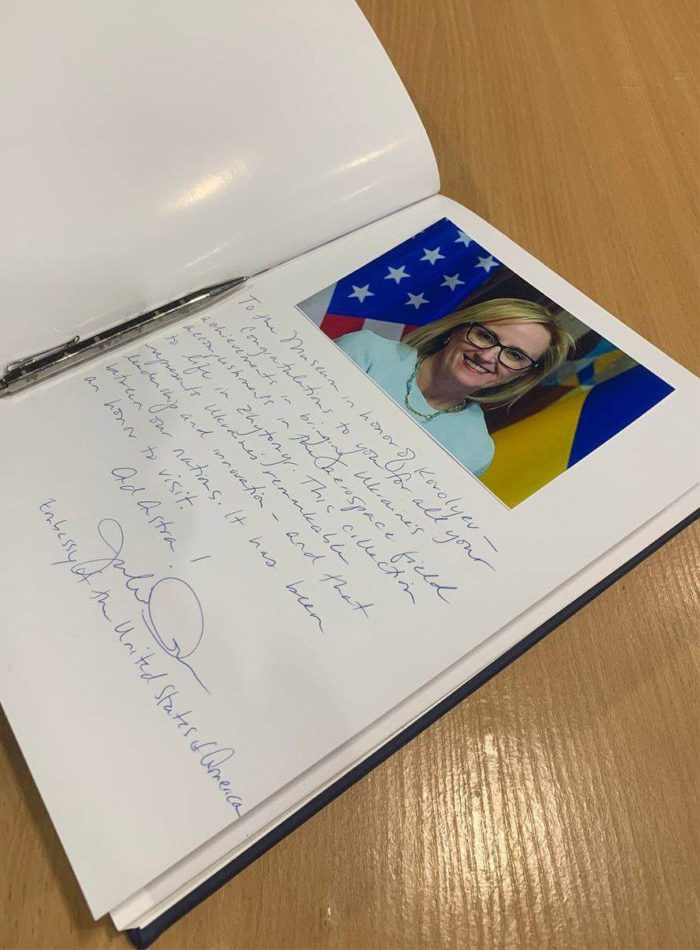 To the Museum in honor of Korolyev —
Congratulations to you for all your
achievements in bringing Ukraine's
accomplishments in the aerospace field
to life in Zhytomyr. This collection
represents Ukraine's remarkable
leadership and innovation - and that
between our nations. It has been
an honor to visit.
Ad Astra!
Embassy of the United States of America